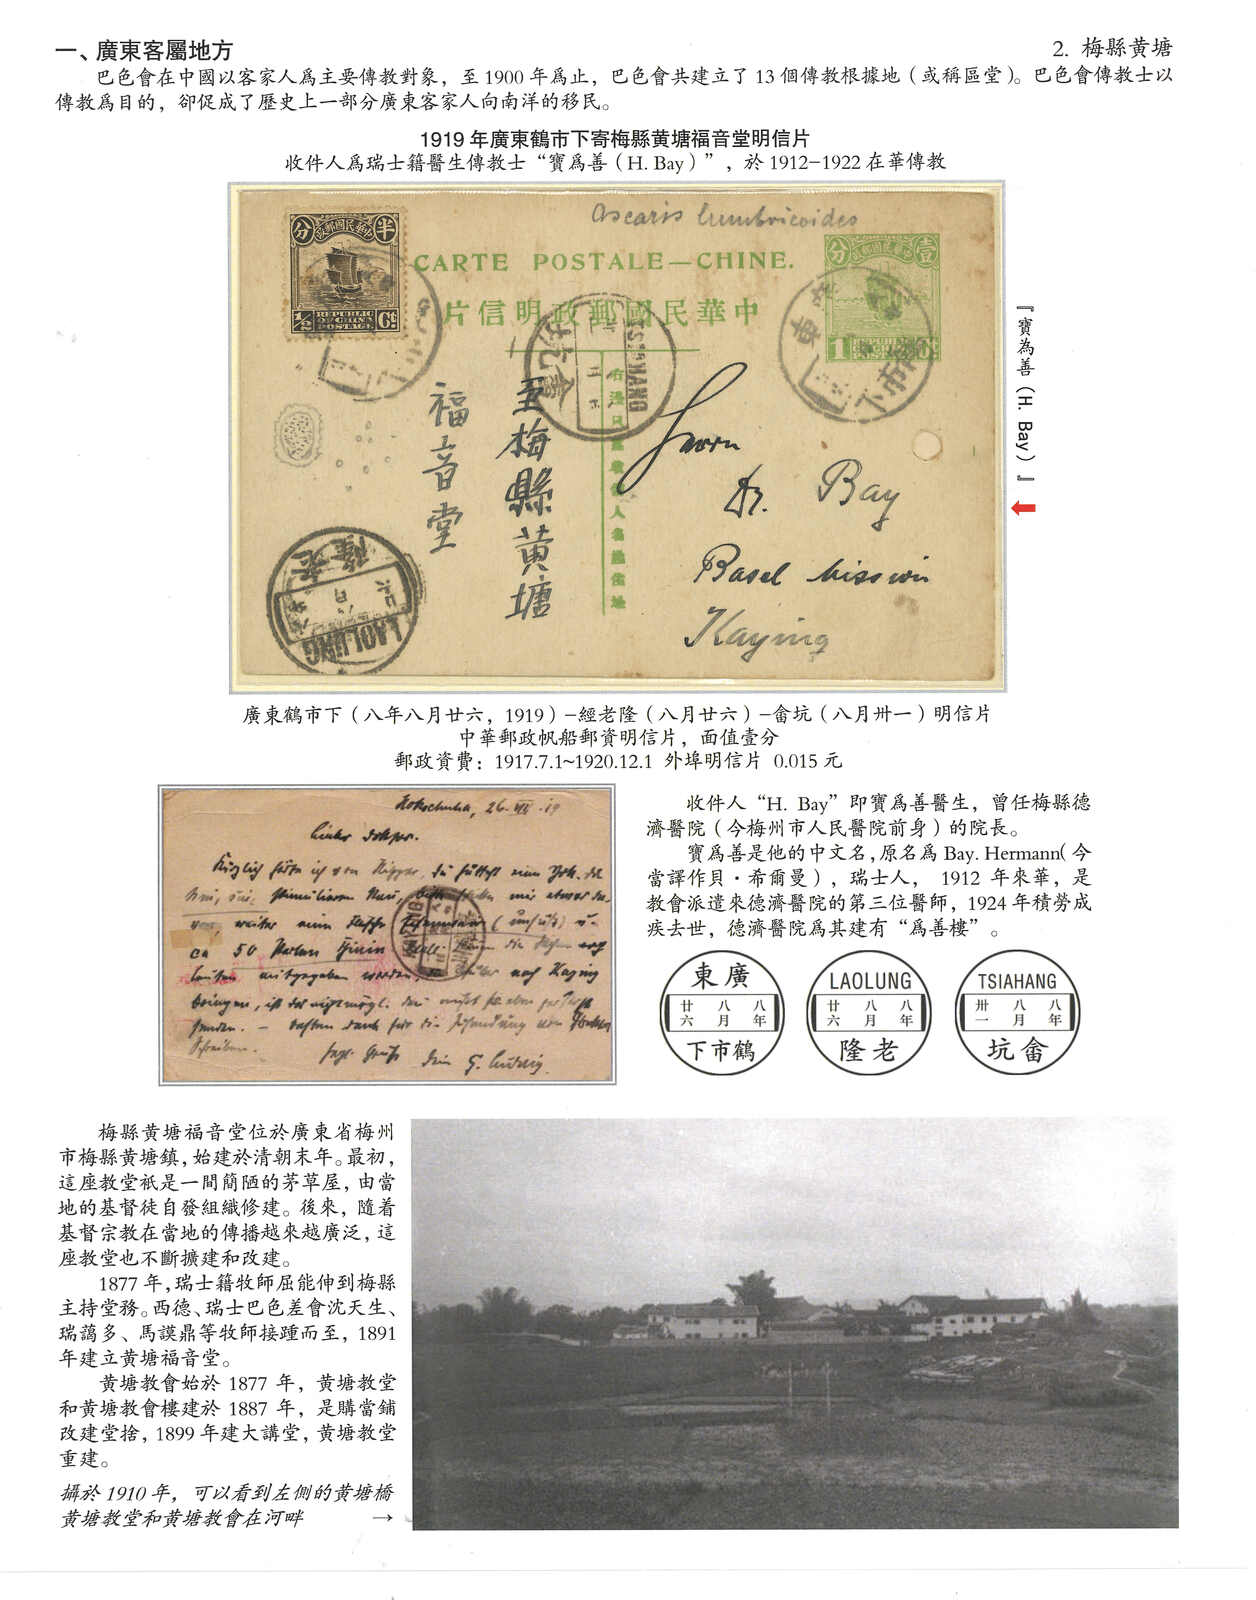 一、廣東客屬地方
2. 梅縣黄塘
巴色會在中國以客家人爲主要傳教對象，至 1900 年爲止，巴色會共建立了 13 個傳教根據地（或稱區堂）。巴色會傳教士以
傳教爲目的，卻促成了歷史上一部分廣東客家人向南洋的移民。
1919 年廣東鶴市下寄梅縣黄塘福音堂明信片
收件人爲瑞士籍醫生傳教士“寶爲善（H. Bay）”，於 1912-1922 在華傳教
Ascaris lumbricoides
分 半
中華民國郵政
1/2 REPUBLIC OF CHINA POSTAGE Ct
分 壹
1
CARTE POSTALE—CHINE.
片信明政郵國民華中
TSIAHANG
至梅縣黄塘
福音堂
Herrn
Dr. Bay
Basel Mission
Kaying
老隆
LAOLUNG
『寶為善（H. Bay）』
廣東鶴市下（八年八月廿六，1919）-經老隆（八月廿六）-畲坑（八月卅一）明信片
中華郵政帆船郵資明信片，面值壹分
郵政資費：1917.7.1~1920.12.1 外埠明信片 0.015 元
Hokschuha, 26. VIII. 19
Lieber Doktor.
ca 50
收件人“H. Bay”即寶爲善醫生，曾任梅縣德
濟醫院（今梅州市人民醫院前身）的院長。
寶爲善是他的中文名，原名爲 Bay. Hermann（今
當譯作貝·希爾曼），瑞士人， 1912 年來華，是
教會派遣來德濟醫院的第三位醫師，1924 年積勞成
疾去世，德濟醫院爲其建有“爲善樓”。
東廣
廿六 八月 八年
下市鶴
LAOLUNG
廿六 八月 八年
隆老
TSIAHANG
卅一 八月 八年
坑畲
梅縣黄塘福音堂位於廣東省梅州
市梅縣黄塘鎮，始建於清朝末年。最初，
這座教堂衹是一間簡陋的茅草屋，由當
地的基督徒自發組織修建。後來，隨着
基督宗教在當地的傳播越來越廣泛，這
座教堂也不斷擴建和改建。
1877 年，瑞士籍牧師屈能伸到梅縣
主持堂務。西德、瑞士巴色差會沈天生、
瑞藹多、馬謨鼎等牧師接踵而至，1891
年建立黄塘福音堂。
黄塘教會始於 1877 年，黄塘教堂
和黄塘教會樓建於 1887 年，是購當鋪
改建堂捨，1899 年建大講堂，黄塘教堂
重建。
攝於 1910 年，可以看到左側的黄塘橋
黄塘教堂和黄塘教會在河畔 →